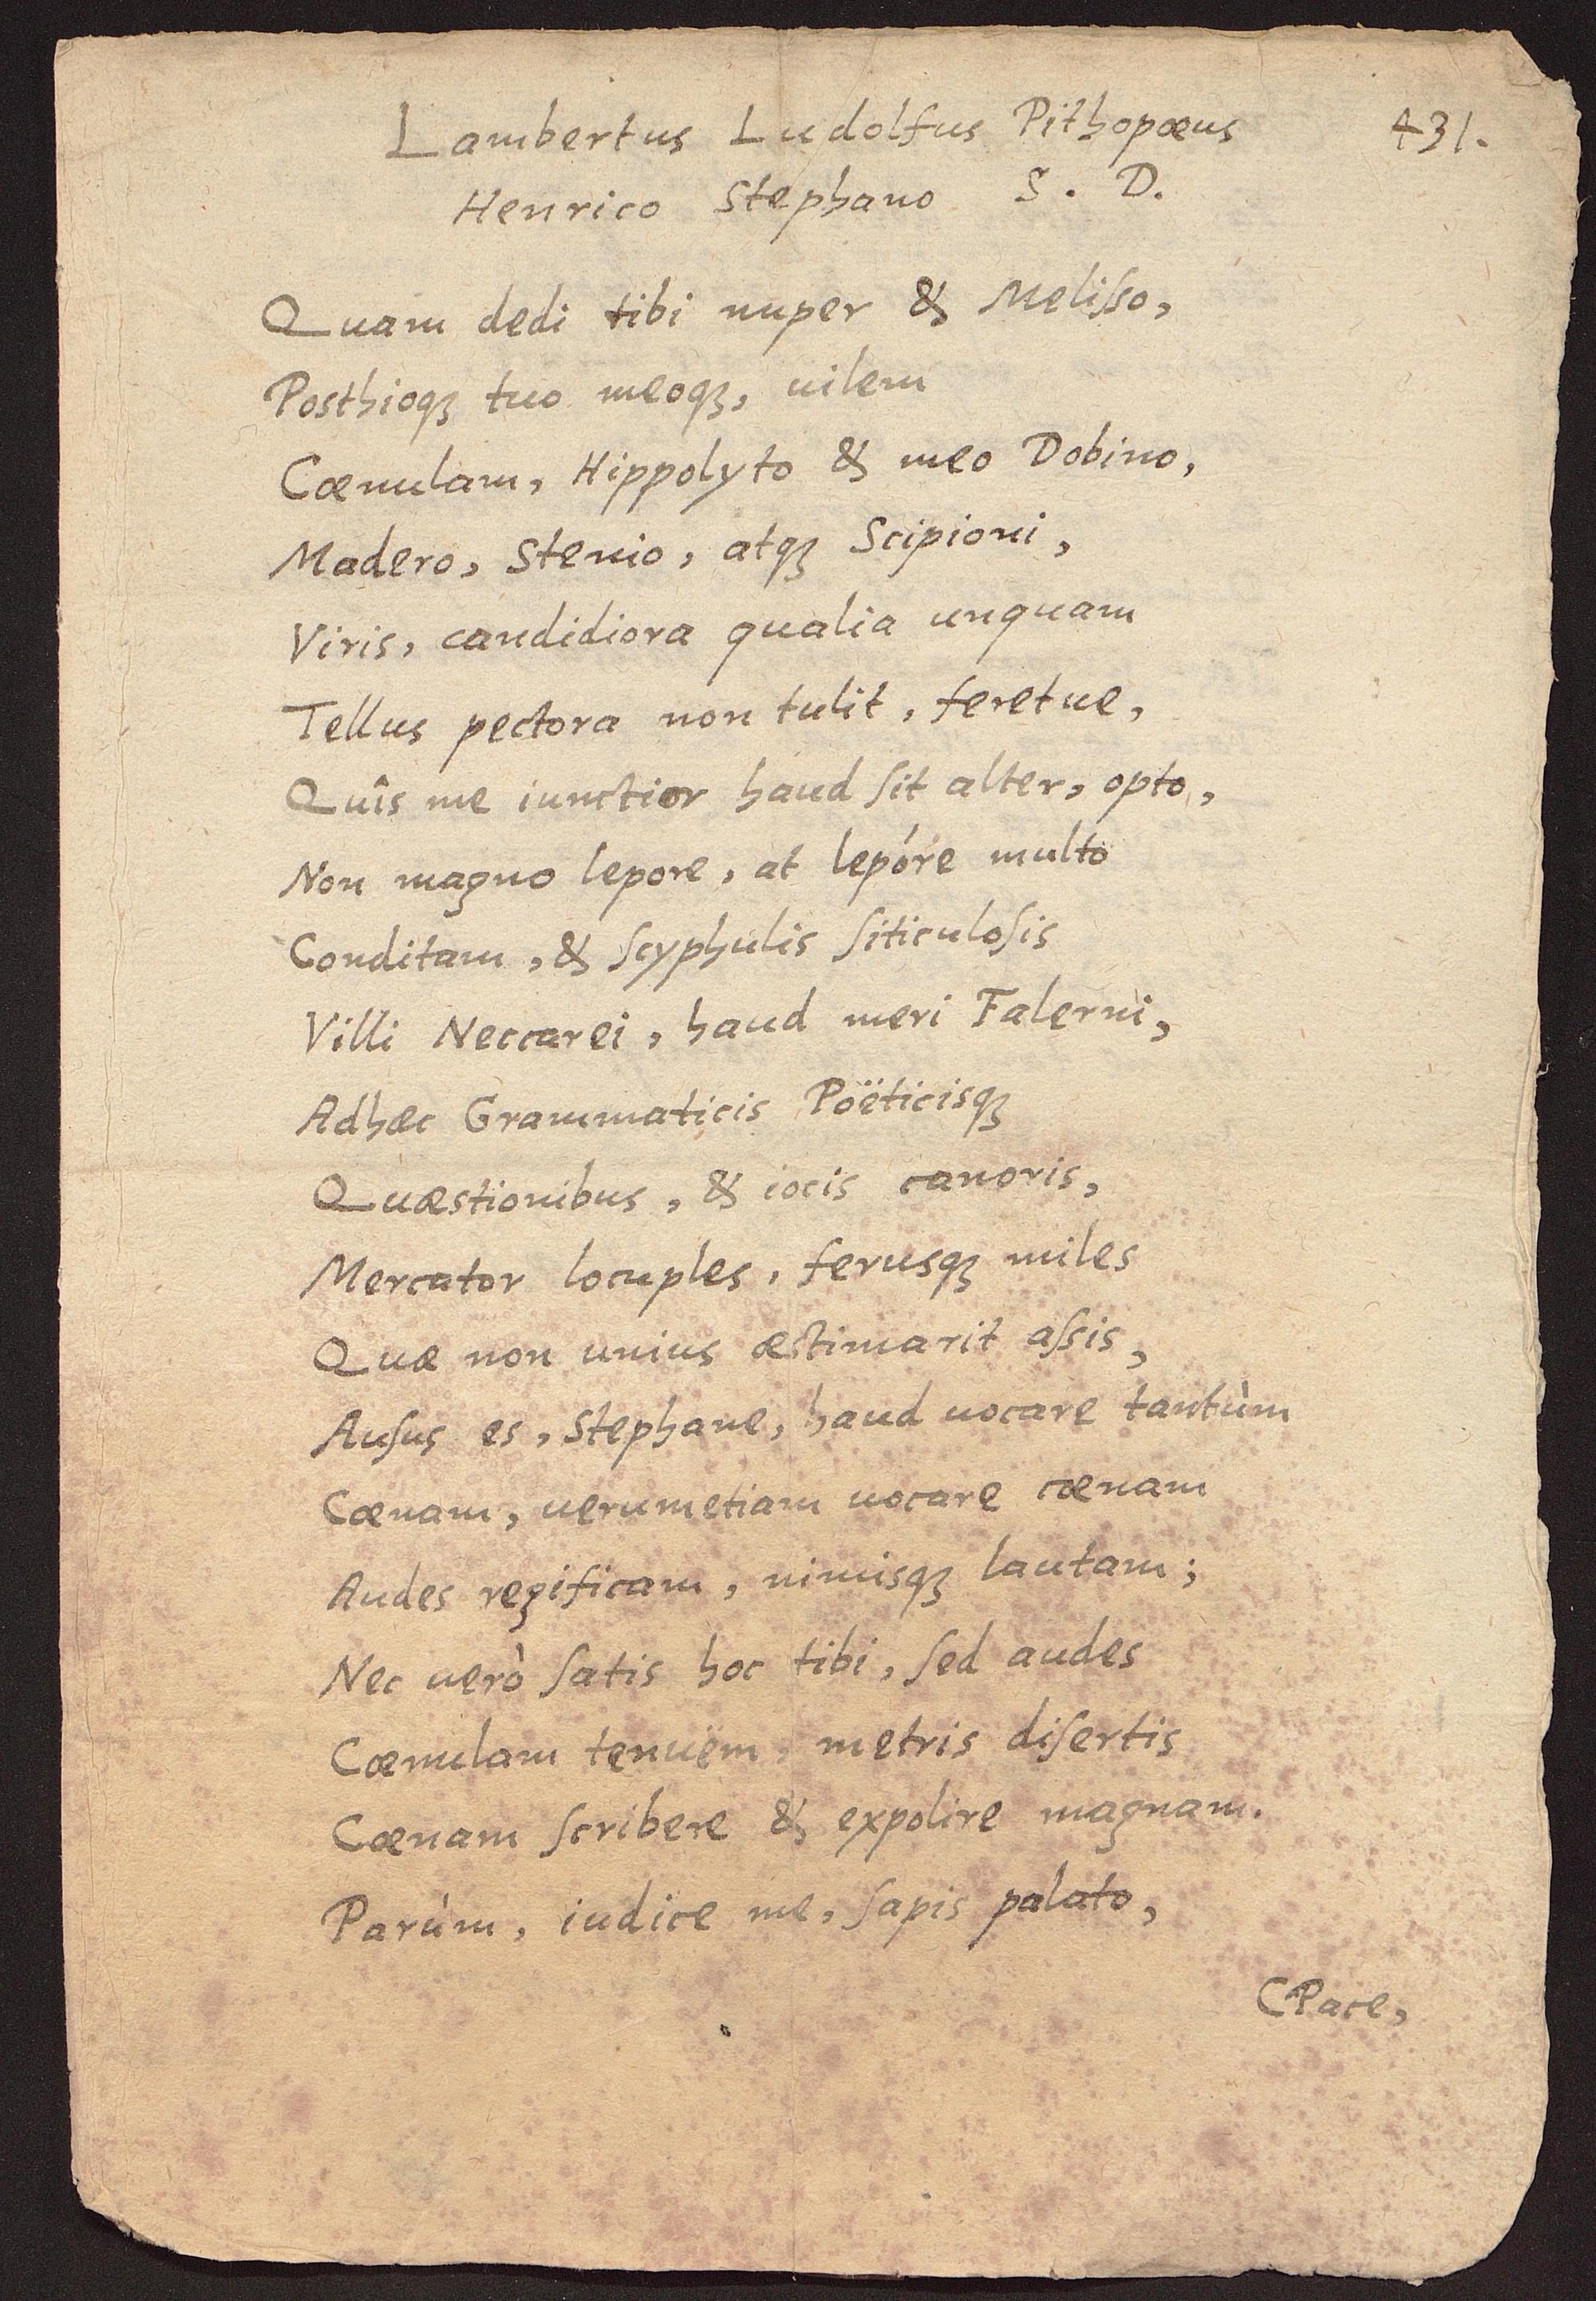 Lambertus Ludolfus Pithopœus 431.
Henrico Stephano S. D.
Quam dedi tibi nuper & Meliſso,
Posthioqꝫ tuo meoqꝫ, uilem
Cœnulam, Hippolyto & meo Dobino,
Madero, Stenio, atqꝫ Scipioni,
Viris, candidiora qualia unquam
Tellus pectora non tulit, feretue,
Quîs me iunctior haud ſit alter, opto,
Non magno lepore, at lepóre multo
Conditam, & ſcyphulis ſiticuloſis
Villi Neccarei, haud meri Falerni,
Adhæc Grammaticis Poëticisqꝫ
Quæstionibus, & iocis canoris,
Mercator locuples, ferusqꝫ miles
Quæ non unius æstimarit aſsis,
Auſus es, Stephane, haud uocare tantùm
Cœnam, uerumetiam uocare cœnam
Audes regificam, nimisqꝫ lautam;
Nec uerò ſatis hoc tibi, ſed audes
Cœnulam tenuëm, metris diſertis
Cœnam ſcribere & expolire magnam.
Parùm, iudice me, ſapis palato,
CPace,